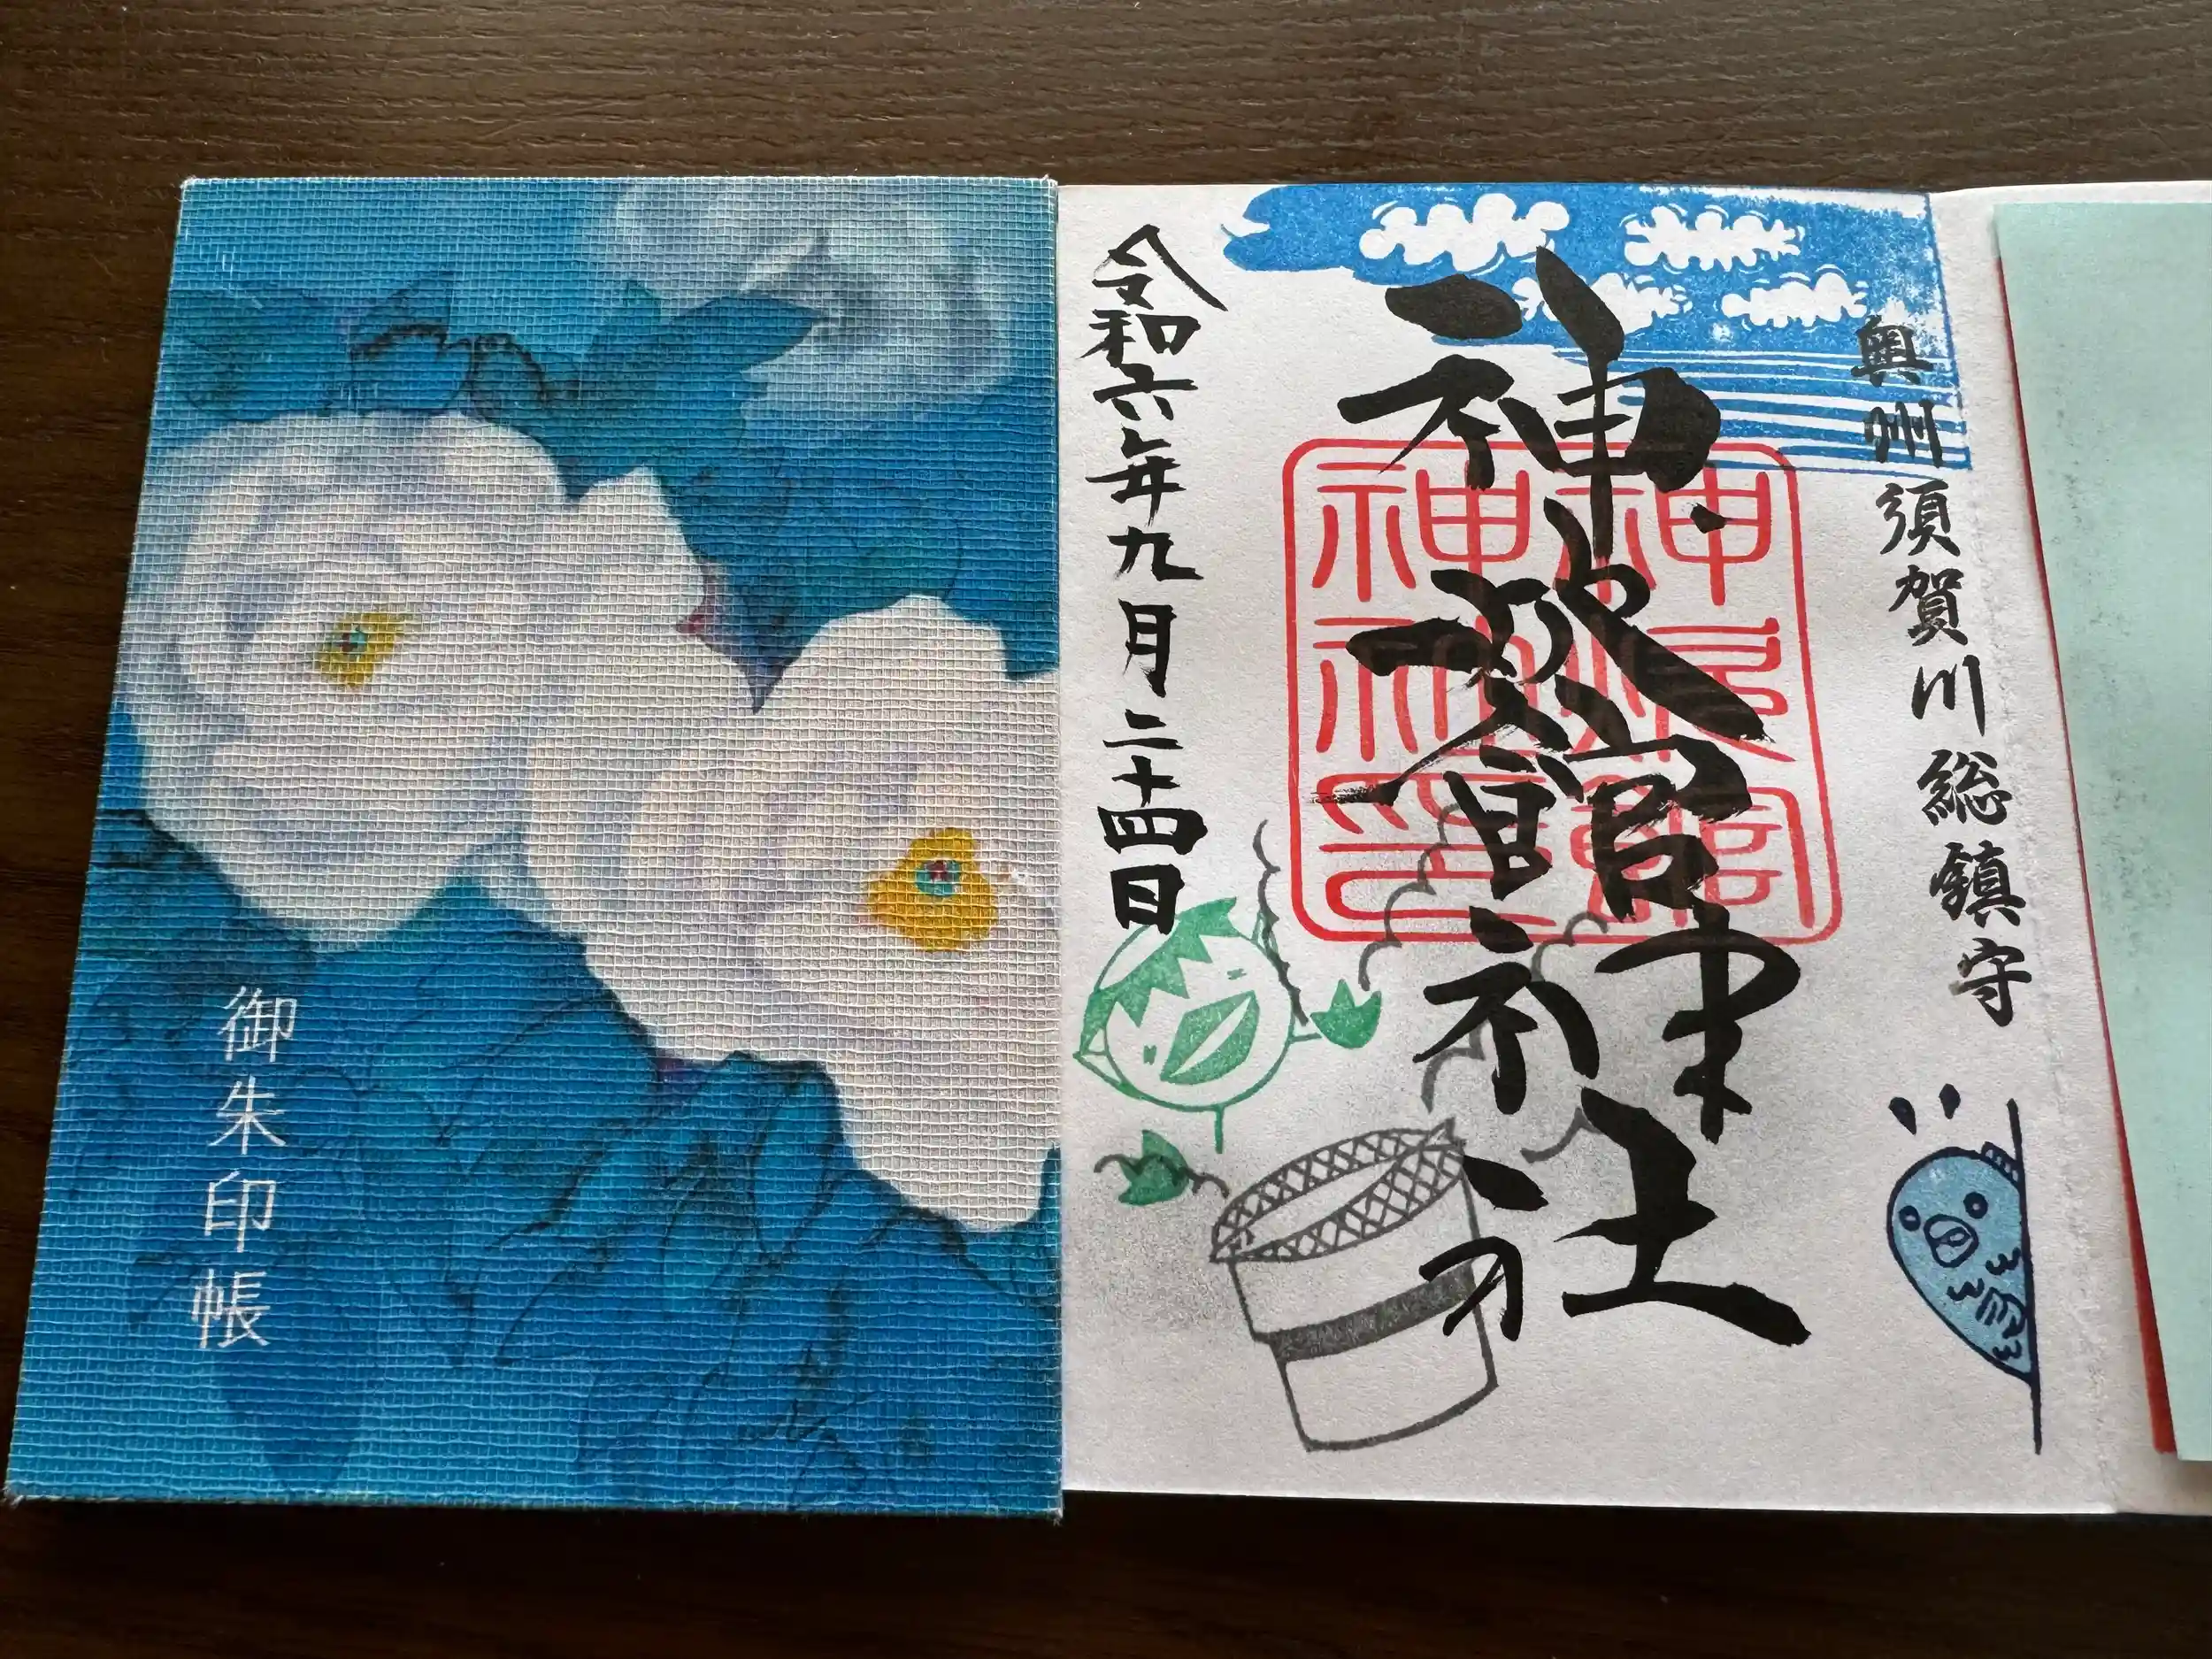 御朱印帳
奥州須賀川総鎮守
神炊館神社
神炊館
神社印
令和六年九月二十四日